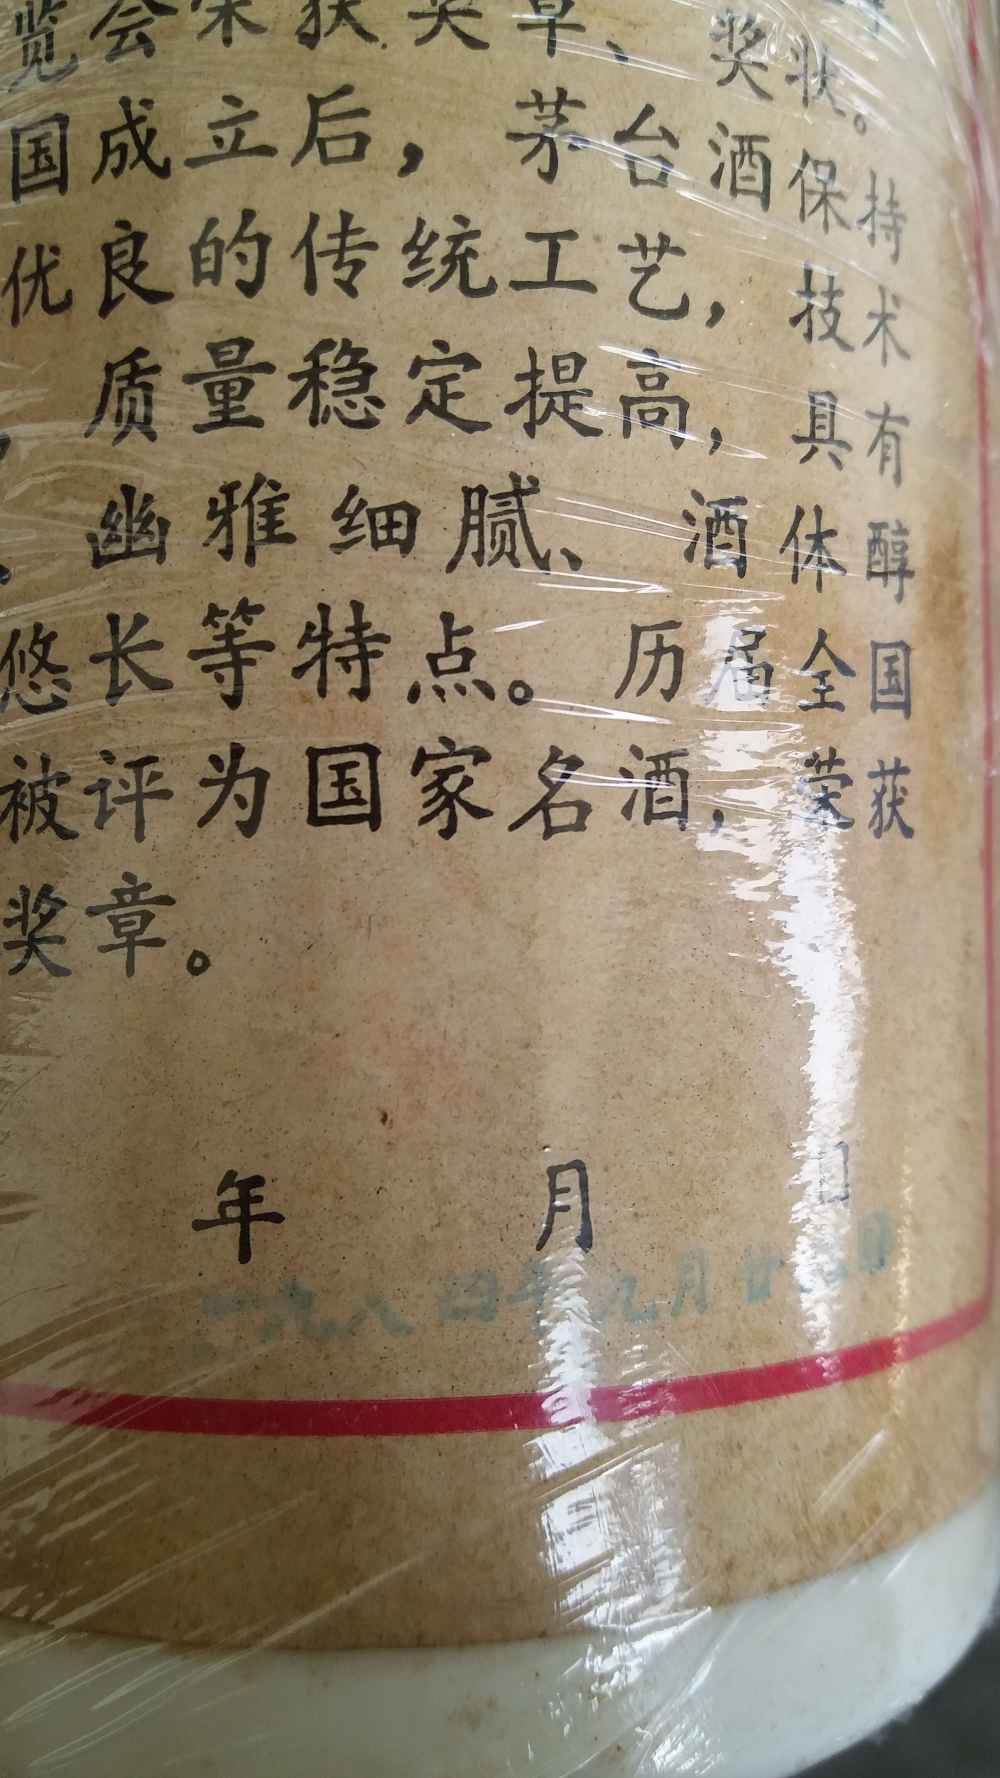 览会荣获奖章、奖状。
国成立后，茅台酒保持
优良的传统工艺，技术
，质量稳定提高，具有
、幽雅细腻、酒体醇
悠长等特点。历届全国
被评为国家名酒，荣获
奖章。
年 月 日
一九八四年九月廿 日